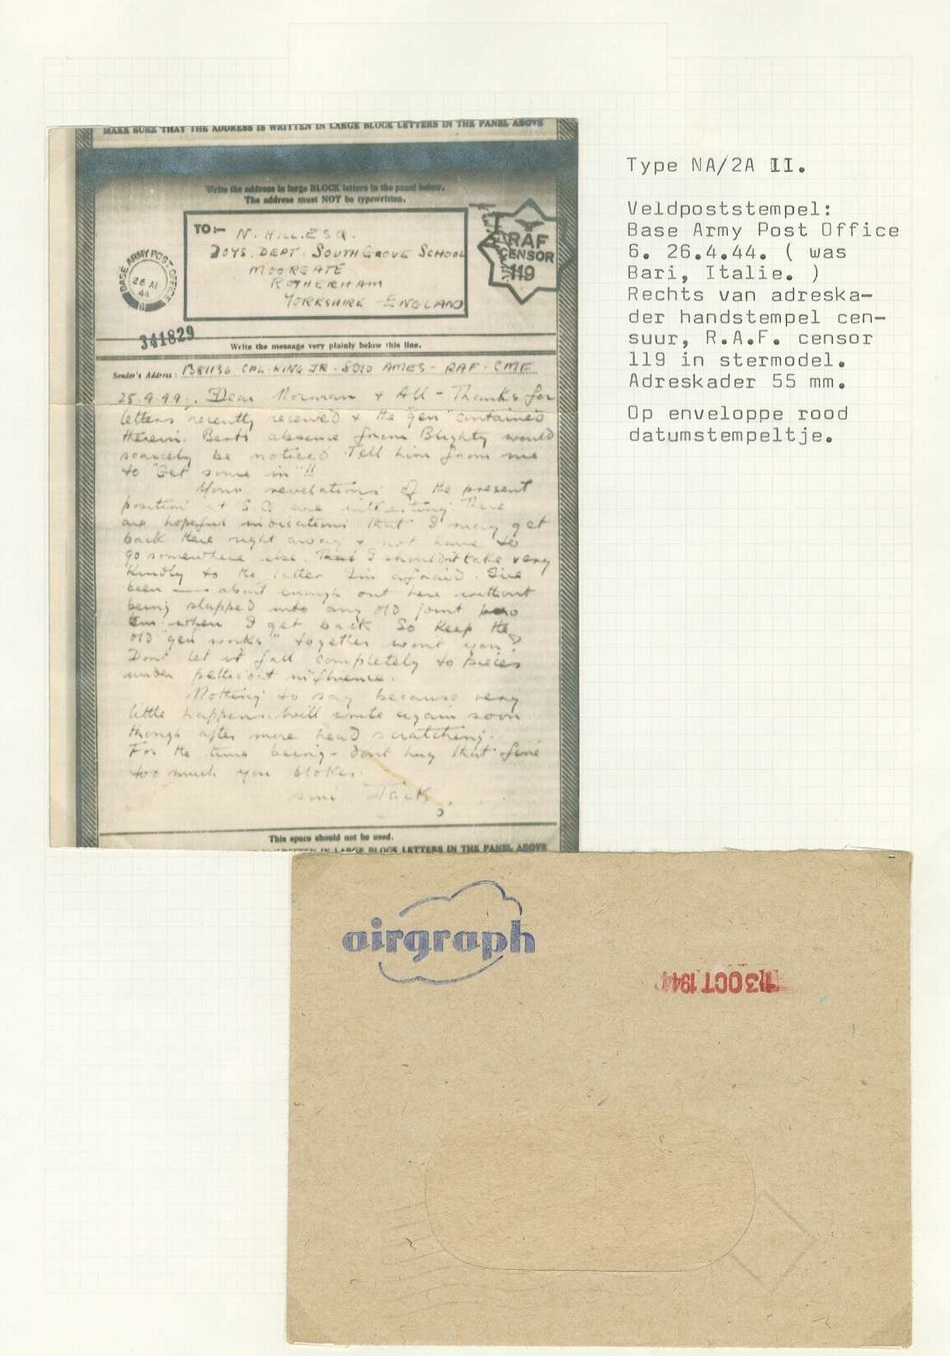 MAKE SURE THAT THE ADDRESS IS WRITTEN IN LARGE BLOCK LETTERS IN THE PANEL ABOVE
Write the address in large BLOCK letters in the panel below.
The address must NOT be typewritten.
TO:—
N. HILL. ESQ.
BOYS. DEPT. SOUTH GROVE SCHOOL
MOORGATE
ROTHERHAM
YORKSHIRE - ENGLAND
BASE ARMY POST OFFICE
26
44
6
RAF
CENSOR
119
341829
Write the message very plainly below this line.
Sender's Address: CPL. KING JR. 5010 AMES - RAF - CMF
Dear Norman & All - Thanks for
letters recently received & the "gen" contained
herein. Bert's absence from Blighty would
scarcely be noticed. Tell him from me
to "Get some in"!!
Your revelations of the present
position at S.G. are interesting. There
are hopeful indications that I may get
back there right away & not have to
go somewhere else. I shouldn't take very
kindly to the latter I'm afraid. I've
been about enough out here without
being slapped into any old joint
when I get back. So keep the
old "gen works" together won't you?
Don't let it fall completely to pieces
under petticoat influence.
Nothing to say because very
little happens. Will write again soon
though after more head scratching.
For the time being - don't hug that fire
too much you blokes.
Jack
This space should not be used.
WRITTEN IN LARGE BLOCK LETTERS IN THE PANEL ABOVE
Type NA/2A II.
Veldpoststempel:
Base Army Post Office
6. 26.4.44. ( was
Bari, Italie. )
Rechts van adreska-
der handstempel cen-
suur, R.A.F. censor
119 in stermodel.
Adreskader 55 mm.
Op enveloppe rood
datumstempeltje.
airgraph
13 OCT 1944